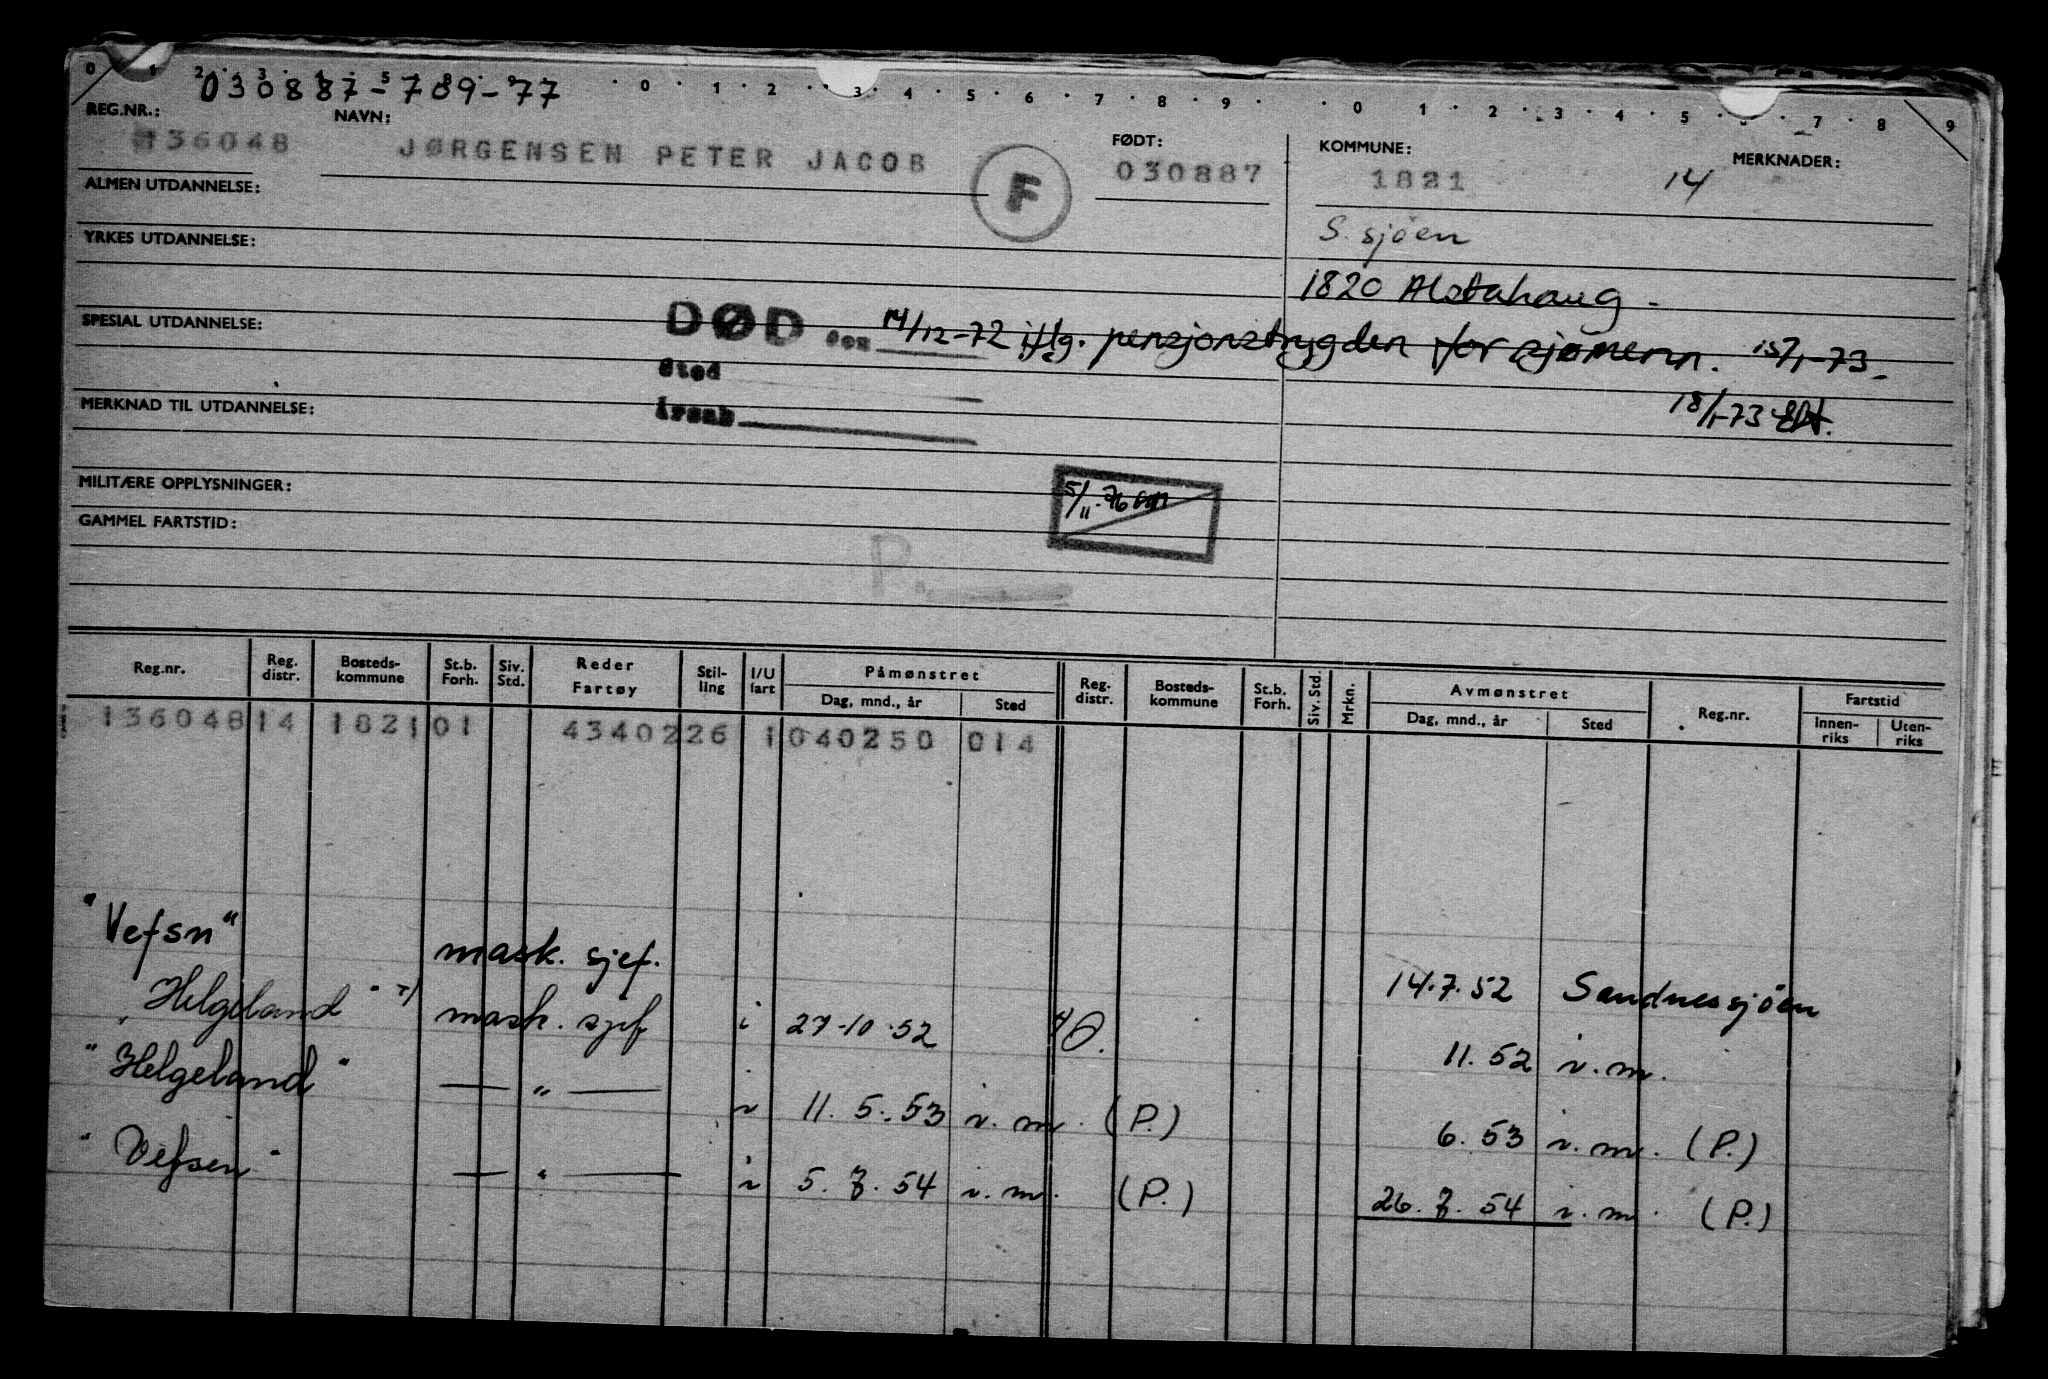 0 1 2 3 4 5 8 9 0 1 2 3 4 5 6 7 8 9 0 1 2 3 4 5 7 8 9
030887-789-77
REG.NR.: NAVN: FØDT: KOMMUNE: MERKNADER:
136048 JØRGENSEN PETER JACOB F 030887 1821 14
ALMEN UTDANNELSE:
S. sjøen
YRKES UTDANNELSE:
1820 Alstahaug -
SPESIAL UTDANNELSE:
DØD den 14/12-72 iflg. pensjonstrygden for sjømenn. 15/1-73
Sted
18/1-73
MERKNAD TIL UTDANNELSE:
Årsak
MILITÆRE OPPLYSNINGER:
5/11-76
GAMMEL FARTSTID:
P.
Reg.nr. Reg. distr. Bosteds-kommune St.b. Forh. Siv. Std. Reder Fartøy Stil-ling I/U fart Påmønstret Dag, mnd., år Sted Reg. distr. Bosteds-kommune St.b. Forh. Siv. Std. Mrkn. Avmønstret Dag, mnd., år Sted Reg.nr. Fartstid Innen-riks Uten-riks
136048 14 1821 01 4340226 1 040250 014
"Vefsn" mask. sjef. 14.7.52 Sandnessjøen
"Helgeland" mask. sjef i 27-10-52 11.52 i.m.
"Helgeland" — " — i 11. 5. 53 i.m. (P.) 6. 53 i.m. (P.)
"Vefsen" — " — i 5. 7. 54 i.m. (P.) 26. 7. 54 i.m. (P.)